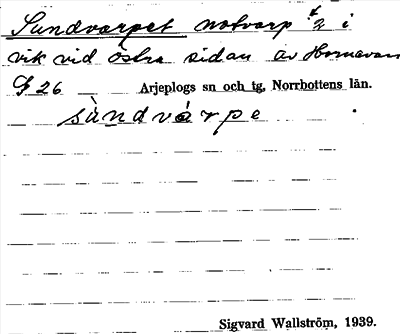 Sundvarpet notvarp 2 i
vik vid östra sidan av Hornavan
26 Arjeplogs sn och tg, Norrbottens län.
sùndvárpe
Sigvard Wallström, 1939.